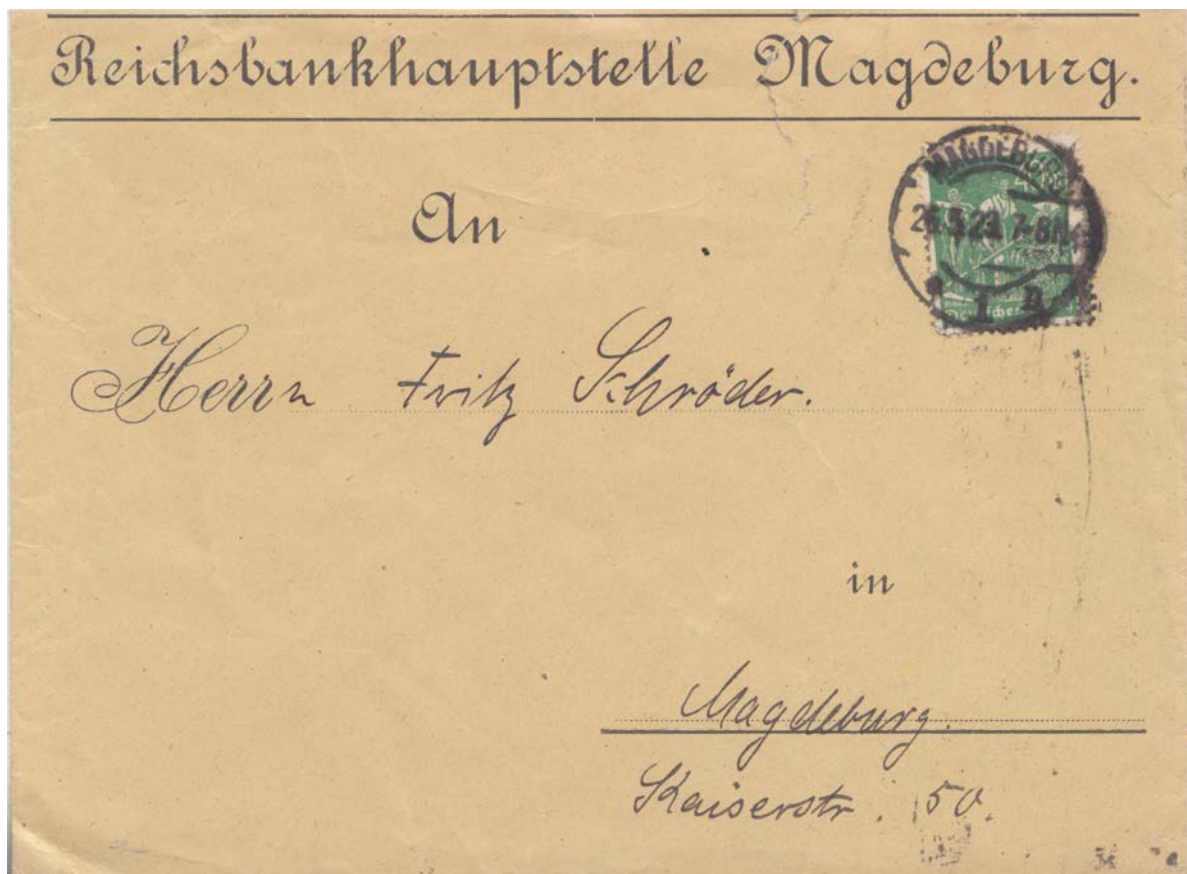 Reichsbankhauptstelle Magdeburg.
MAGDEBURG
7-8N
An
Herrn Fritz Schröder.
in
Magdeburg.
Kaiserstr. 50.